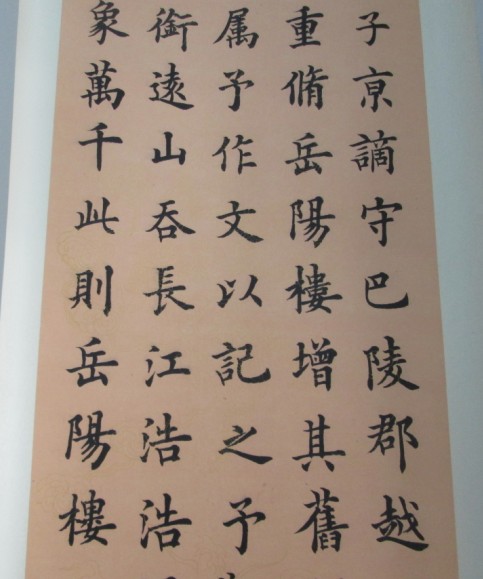 子京謫守巴陵郡越
重脩岳陽樓增其舊
属予作文以記之予
銜遠山吞長江浩浩
象萬千此則岳陽樓